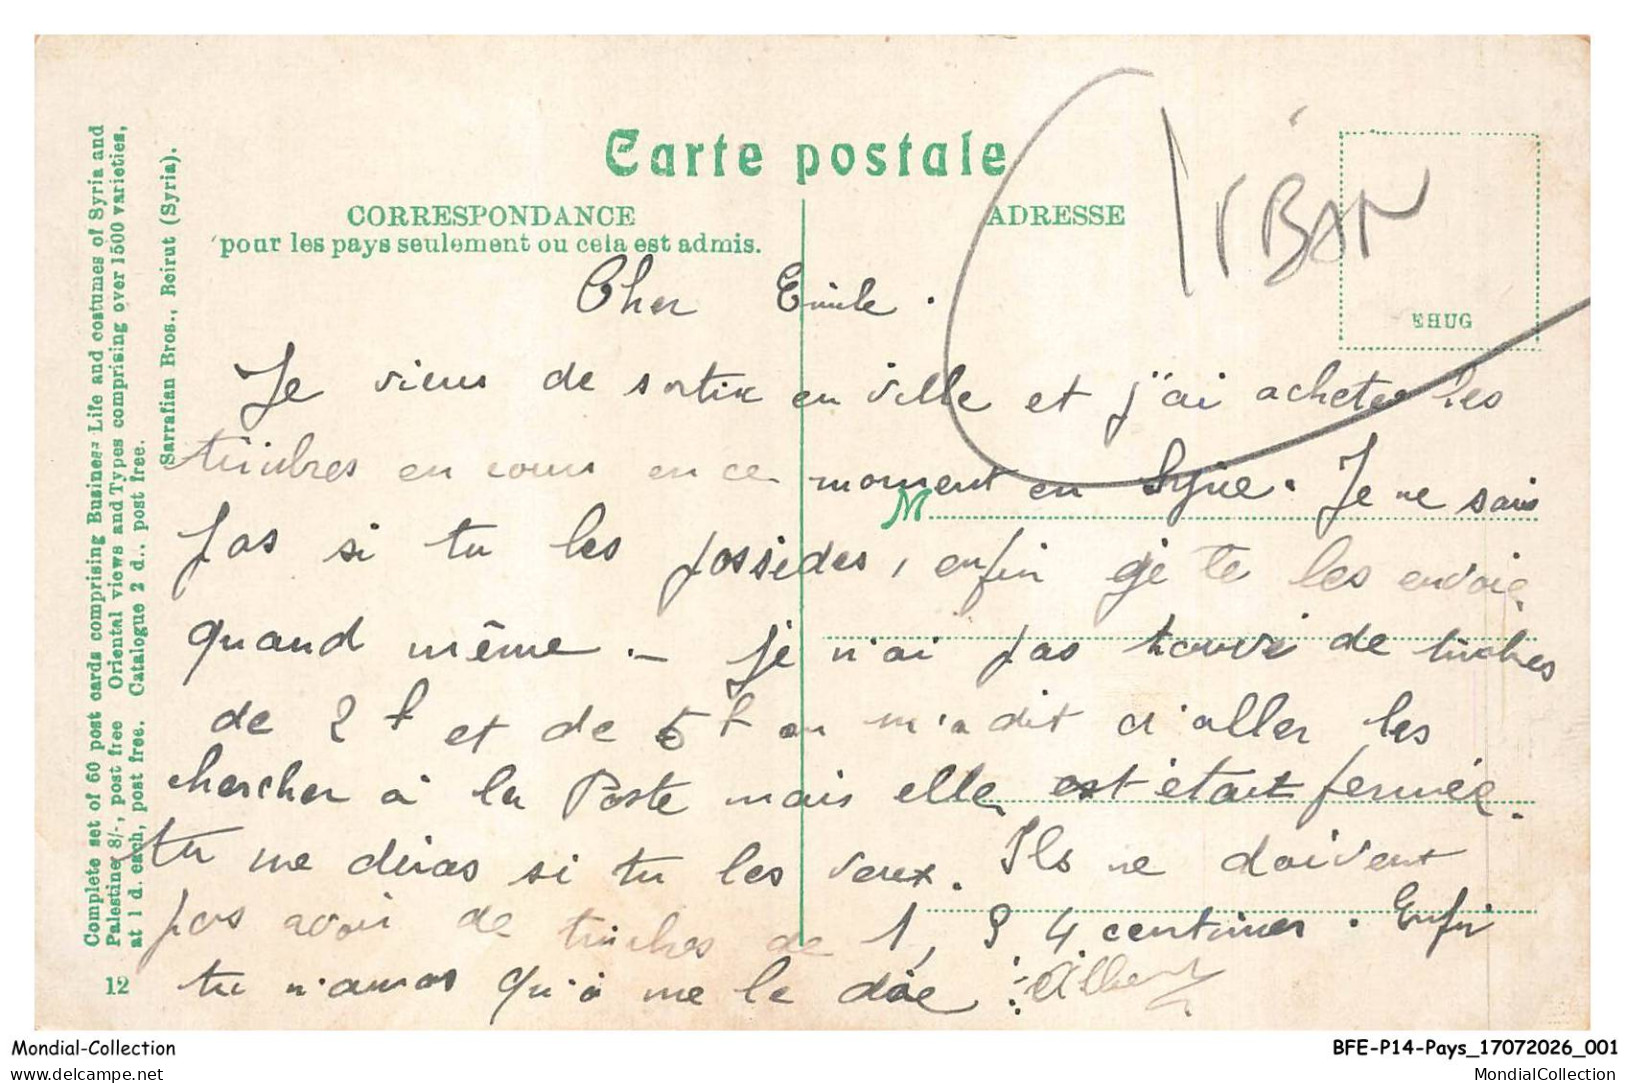 Carte postale
CORRESPONDANCE
pour les pays seulement ou cela est admis.
ADRESSE
LIBAN
EHUG
Complete set of 60 post cards comprising Business Life and costumes of Syria and
Palestine 8/-, post free Oriental views and Types comprising over 1500 varieties,
at 1 d. each, post free. Catalogue 2 d., post free.
Sarrafian Bros., Beirut (Syria).
12
Cher Emile.
Je viens de sortir en ville et j'ai acheter les
timbres en cours en ce moment en Syrie. Je ne sais
M
pas si tu les possèdes, enfin je te les envoie
quand même. – je n'ai pas trouvé de timbres
de 2 f et de 5 f on m'a dit d'aller les
chercher à la Poste mais elle est était fermée.
tu me diras si tu les veux. Ils ne doivent
pas avoir de timbres de 1, 3 4 centimes. Enfin
tu n'auras qu'à me le dire. Albert
Mondial-Collection
delcampe.net
BFE-P14-Pays_17072026_001
MondialCollection